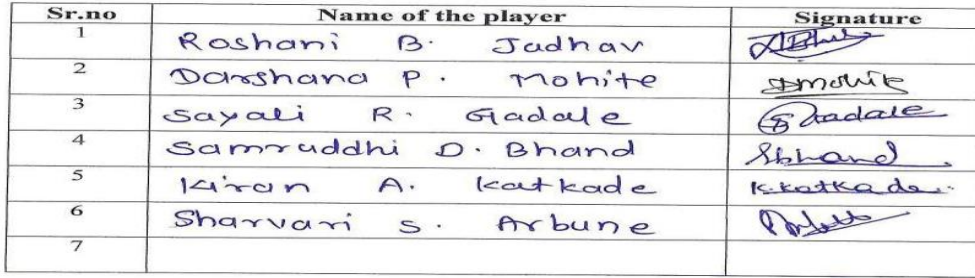 Sr.no Name of the player Signature
1 Roshani B. Jadhav
2 Darshana P. Mohite Dmohite
3 Sayali R. Gadale Gadale
4 Samruddhi D. Bhand Sbhand
5 Kiran A. Katkade K.katkade
6 Sharvari S. Arbune
7